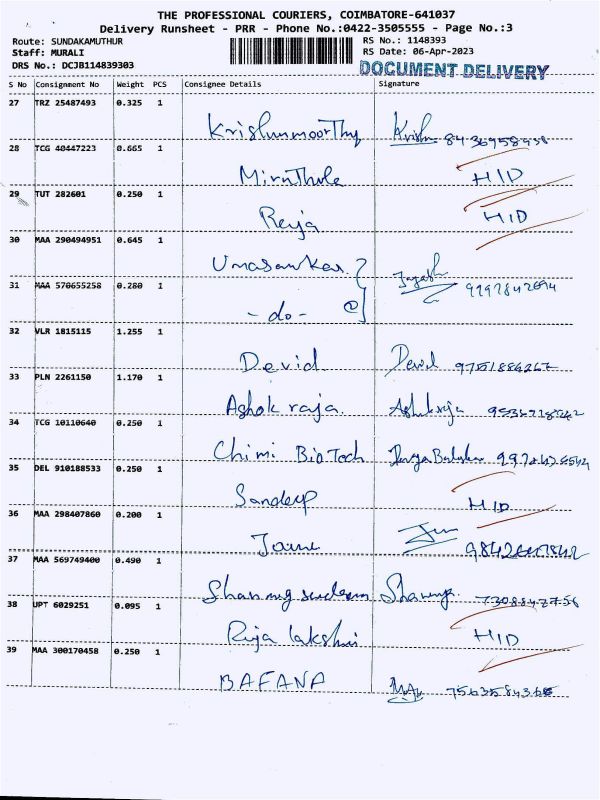 THE PROFESSIONAL COURIERS, COIMBATORE-641037
Delivery Runsheet - PRR - Phone No.:0422-3505555 - Page No.:3
Route: SUNDAKAMUTHUR RS No.: 1148393
Staff: MURALI RS Date: 06-Apr-2023
DRS No.: DCJB114839303 DOCUMENT DELIVERY
S No Consignment No Weight PCS Consignee Details Signature
27 TRZ 25487493 0.325 1
Krishnmoorthy Krish
28 TCG 40447223 0.665 1
HID
29 TUT 282601 0.250 1
HID
30 MAA 290494951 0.645 1
Umasankar
31 MAA 570655258 0.280 1
- do -
32 VLR 1815115 1.255 1
Devid
33 PLN 2261150 1.170 1
Ashok raja.
34 TCG 10110640 0.250 1
Chimi BioTech
35 DEL 910188533 0.250 1
Sandeep HID
36 MAA 298407860 0.200 1
37 MAA 569749400 0.490 1
38 UPT 6029251 0.095 1
HID
39 MAA 300170458 0.250 1
BAFANA